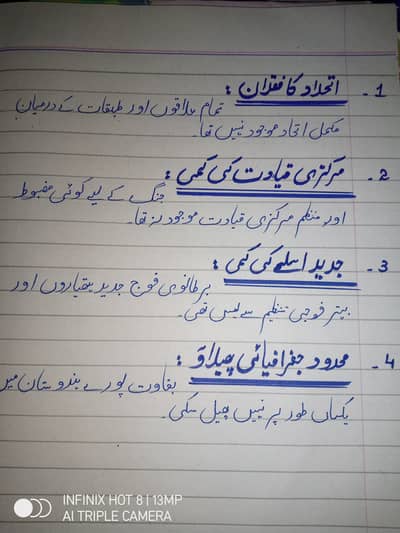 1 - اتحاد کا فقدان :
تمام علاقوں اور طبقات کے درمیان
مکمل اتحاد موجود نہیں تھا۔
2 - مرکزی قیادت کی کمی :
جنگ کے لیے کوئی مضبوط
اور منظم مرکزی قیادت موجود نہ تھا۔
3 - جدید اسلحے کی کمی :
برطانوی فوج جدید ہتھیاروں اور
بہتر فوجی تنظیم سے لیس تھی۔
4 - محدود جغرافیائی پھیلاؤ :
بغاوت پورے ہندوستان میں
یکساں طور پر نہیں پھیل سکی۔
INFINIX HOT 8 | 13MP
AI TRIPLE CAMERA